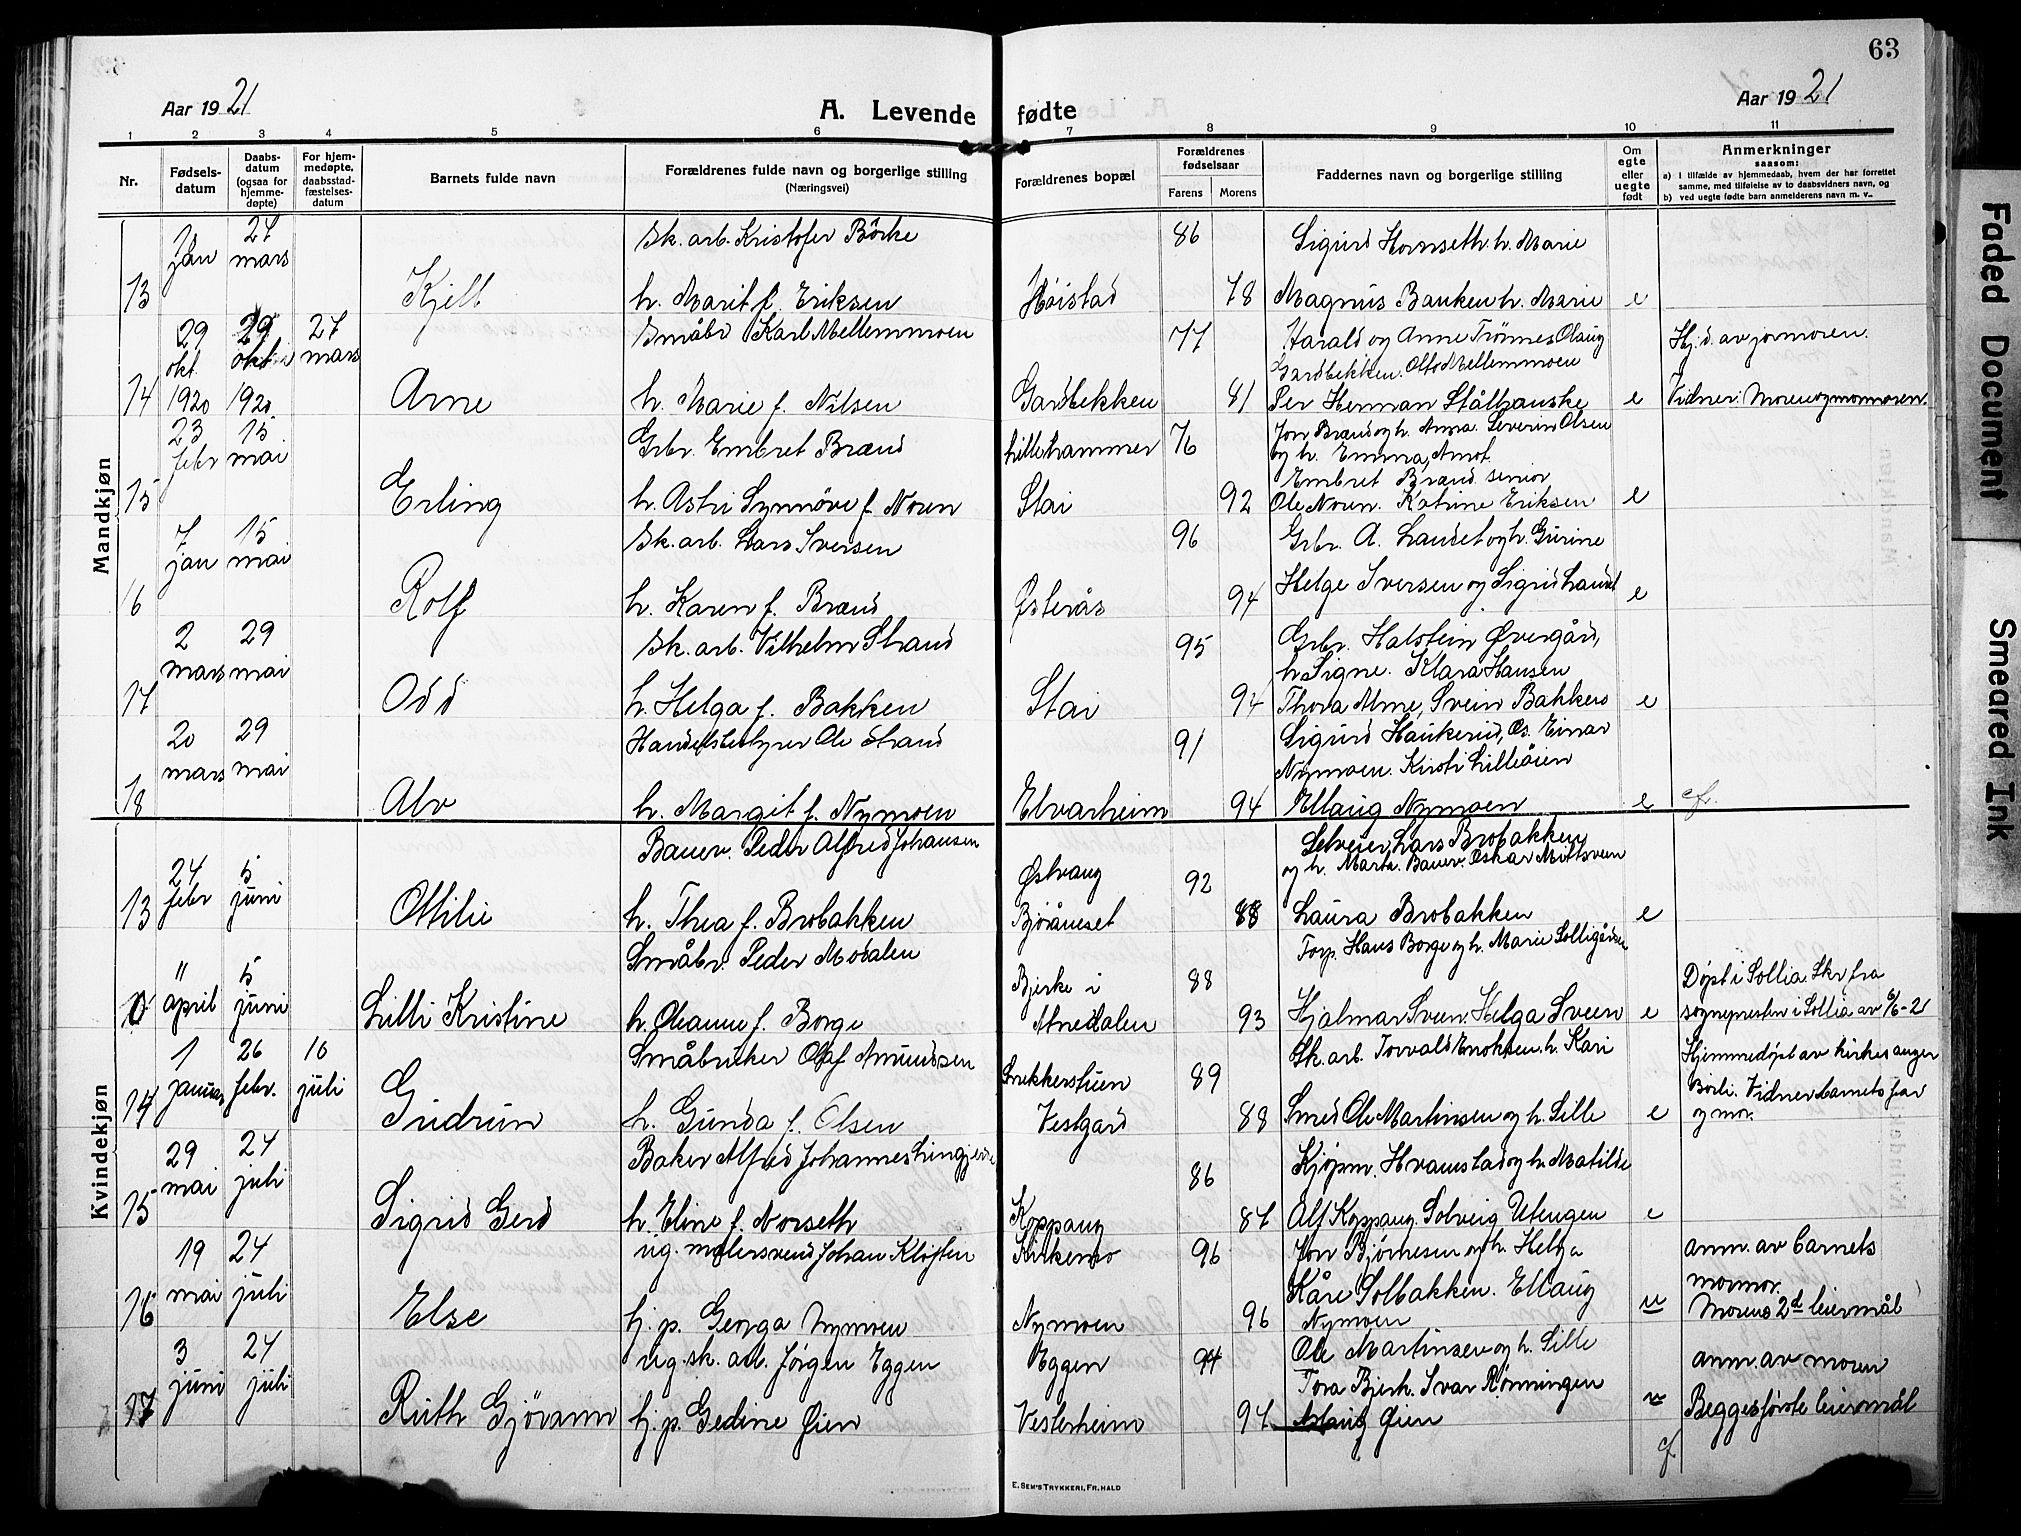 63
Aar 1921
A. Levende fødte
Aar 1921
1 2 3 4 5 6 7 8 9 10 11
Nr.
Fødsels-datum
Daabs-datum (ogsaa for hjemme-døpte)
For hjem-medøpte, daabsstad-fæstelses-datum
Barnets fulde navn
Forældrenes fulde navn og borgerlige stilling
(Næringsvei)
Forældrenes bopæl
Forældrenes fødselsaar
Farens Morens
Faddernes navn og borgerlige stilling
Om egte eller uegte født
Anmerkninger
saasom:
a) I tilfælde av hjemmedaab, hvem der har forrettet
samme, med tilføielse av to daabsvidners navn, og
b) ved uegte fødte barn anmelderens navn m. v.
Mandkjøn
jan 27 mars Sk. arb. Kristofer Börke 86 Sigurd Hornseth. h. Marie
13 Kjell h. Marit f. Eriksen Høistad 78 Magnus Banken h. Marie e
29 okt. 29 okt 27 mars Småbr Karl Mellemmoen 77 Harald og Anne Trönnes Olaug Hj. d. av jormoren.
Gardbekken. Olto Mellemmoen
14 1920 1920 Arne h. Marie f. Nilsen Gardbekken 81 Per Herman Stålhanske e Vidner: Moren og mormoren.
23 febr 15 mai Gbr. Embret Brænd Lillehammer 76 Jon Brænd og h. Anna. Severin Olsen
og h. Emma, Amot
Embret Brænd senior
15 Erling h. Astri Synnöve f. Noren Stai 92 Ole Noren. Katrine Eriksen e
7 jan 15 mai Sk. arb. Lars Iversen 96 Grbr. A. Landet og h. Gurine
16 Rolf h. Karen f. Brænd Østerås 94 Helge Iversen og Sigrid Landet e
2 mars 29 mai Sk. arb. Vilhelm Strand 95 Grbr. Halstein Øvergård,
h Signe. Klara Hansen
17 Odd h. Helga f. Bakken Stai 94 Thora Alme, Svein Bakken e
20 mars 29 mai Handelsbestyrer Ole Strand 91 Sigurd Haukerud, Os. Einar
Nymoen. Kirsti Lilleöien
18 Alv h. Margit f. Nymoen Elvarheim 94 Ellaug Nymoen e cfr.
Kvindekjøn
24 febr 5 juni Banev. Peder Alfred Johansen Østvang 92 Selveier Lars Brobakken
og h. Marte. Banev. Oskar Mittsveen
13 Ottilie h. Thea f. Brobakken Björåneset 88 Laura Brobakken e
" april 5 juni Småbr. Peder Modalen Bjerke i 88 Torp. Hans Borge og h. Marie Solligården Døpt i Sollia. Skr. fra
Lilli Kristine h. Oleanne f. Borge Atnedalen 93 Hjalmar Sveen. Helga Sveen e sognepresten i Sollia av 6/6-21
1 januar 26 febr. 10 juli Småbruker Olaf Amundsen Snekkerstuen 89 Sk. arb. Torvald Enoksen. h. Kari Hjemmedøpt av kirkesanger
Börli. Vidner barnets far
14 Gudrun h. Gunda f. Olsen Vestgard 88 Smed Ole Martinsen og h. Lille e og mor.
29 mai 24 juli Baker Alfred Johannes Lingjerde 86 Kjöpm. Hvamstad og h. Matilde
15 Sigrid Gerd h. Eline f. Norseth Koppang 87 Alf Koppang. Solveig Utengen e
19 mai 24 juli ug. malersvend Johan Kløften Kirkemo 96 Jon Björnesen og h. Helga anm. av barnets
Kåre Solbakken. Ellaug mormor.
16 Else hj. p. Georga Nymoen Nymoen 96 Nymoen u Morens 2d leiermål
3 juni 24 juli ug. sk. arb. Jørgen Eggen Eggen 94 Ole Martinsen og h. Lille anm. av moren
Tora Bjerk. Ivar Rønningen
17 Ruth Gjövann hj. p. Gedine Øien Vesterheim 97 Aslaug Øien u Begges förste leiermål
cf.
E. Sem's Trykkeri, Fr.hald
Faded Document
Smeared Ink